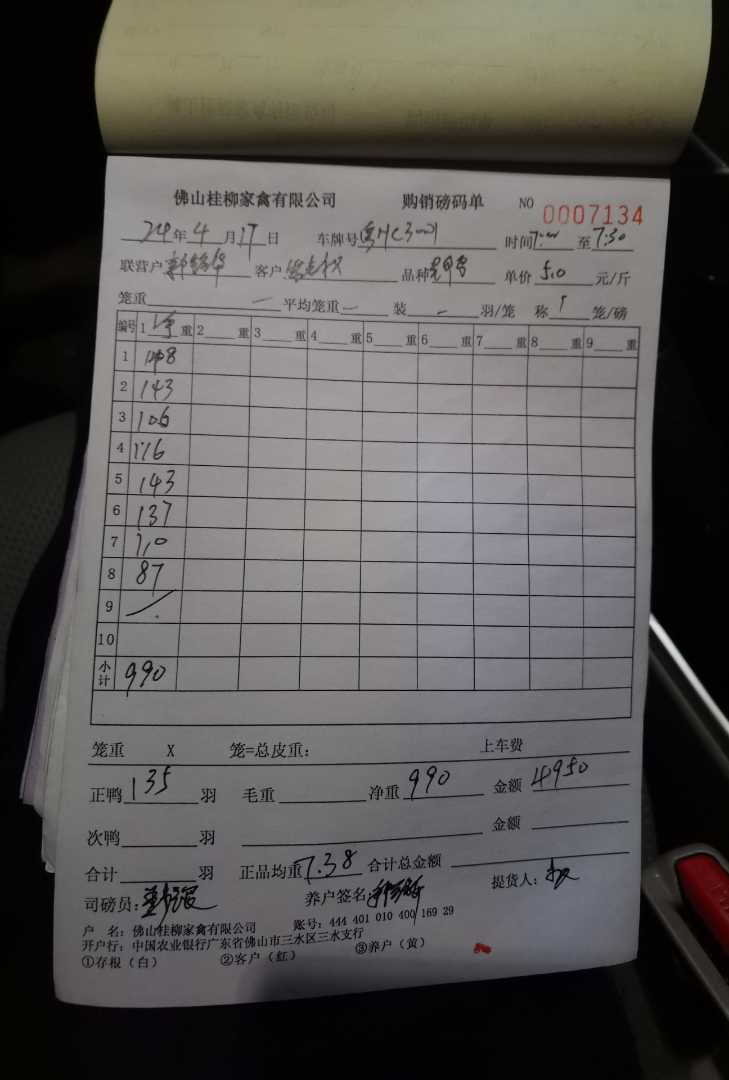 佛山桂柳家禽有限公司 购销磅码单 NO 0007134
24年4月17日 车牌号 时间7:00至7:30
联营户 客户 品种 单价5.0元/斤
笼重 一 平均笼重 一 装 一 羽/笼 称 1 笼/磅
编号 1 重 2 重 3 重 4 重 5 重 6 重 7 重 8 重 9 重
1 148
2 143
3 106
4 116
5 143
6 137
7 110
8 87
9
10
小计 990
笼重 X 笼=总皮重: 上车费
正鸭135羽 毛重 净重990 金额4950
次鸭 羽 金额
合计 羽 正品均重7.38 合计总金额
司磅员: 养户签名 提货人:
户 名: 佛山桂柳家禽有限公司 账号: 444 401 010 400 169 29
开户行: 中国农业银行广东省佛山市三水区三水支行
①存根(白) ②客户(红) ③养户(黄)